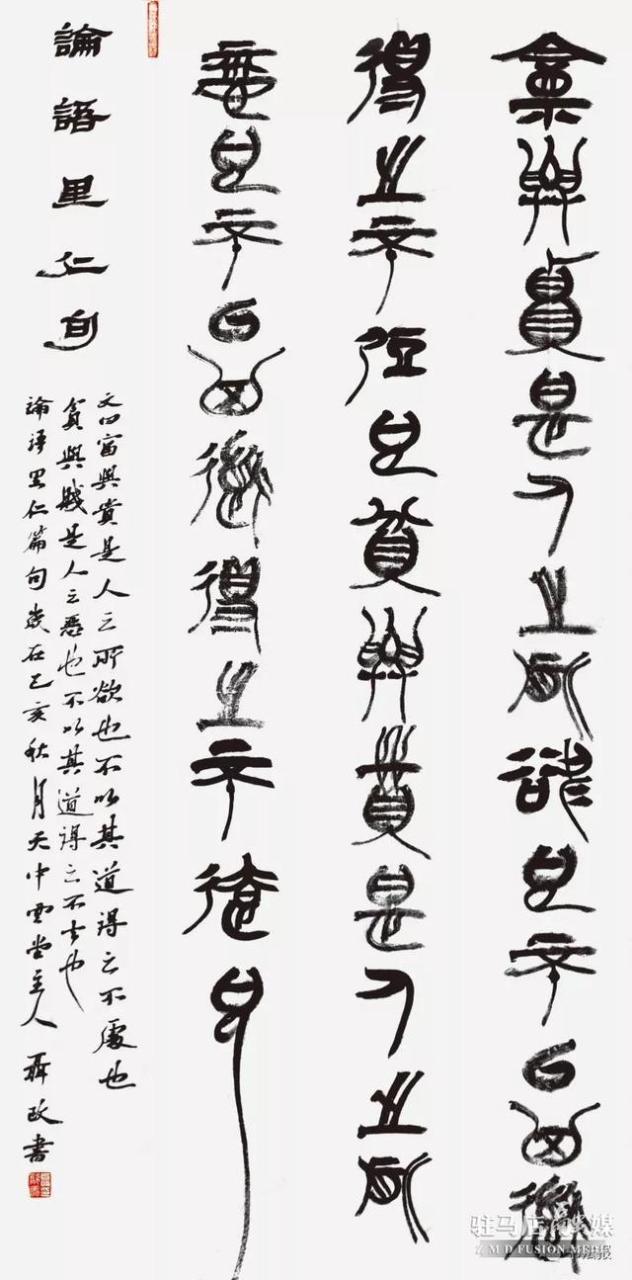 富與貴是人之所欲也不以其道
得之不處也貧與賤是人之所
惡也不以其道得之不去也
論語里仁句
文曰富與貴是人之所欲也不以其道得之不處也
貧與賤是人之惡也不以其道得之不去也
論語里仁篇句歲在己亥秋月天中雲堂主人聶書
驻马店融媒
ZMD FUSION MEDIA